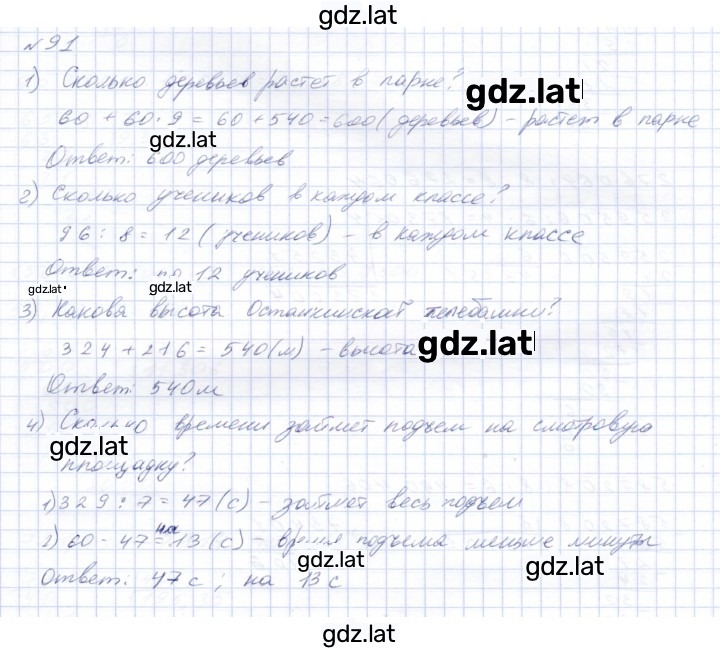 gdz.lat
№91
1) Сколько деревьев растет в парке? gdz.lat
60 + 60·9 = 60 + 540 = 600 (деревьев) - растет в парке
gdz.lat
Ответ: 600 деревьев
2) Сколько учеников в каждом классе?
96 : 8 = 12 (учеников) - в каждом классе
Ответ: по 12 учеников
gdz.lat gdz.lat
3) Какова высота Останкинской телебашни?
324 + 216 = 540 (м) - высота gdz.lat
Ответ: 540 м
4) Сколько времени займет подъем на смотровую
gdz.lat
площадку?
1) 329 : 7 = 47 (с) - займет весь подъем
2) 60 - 47 = на 13 (с) - время подъема меньше минуты
gdz.lat gdz.lat
Ответ: 47 с ; на 13 с
gdz.lat